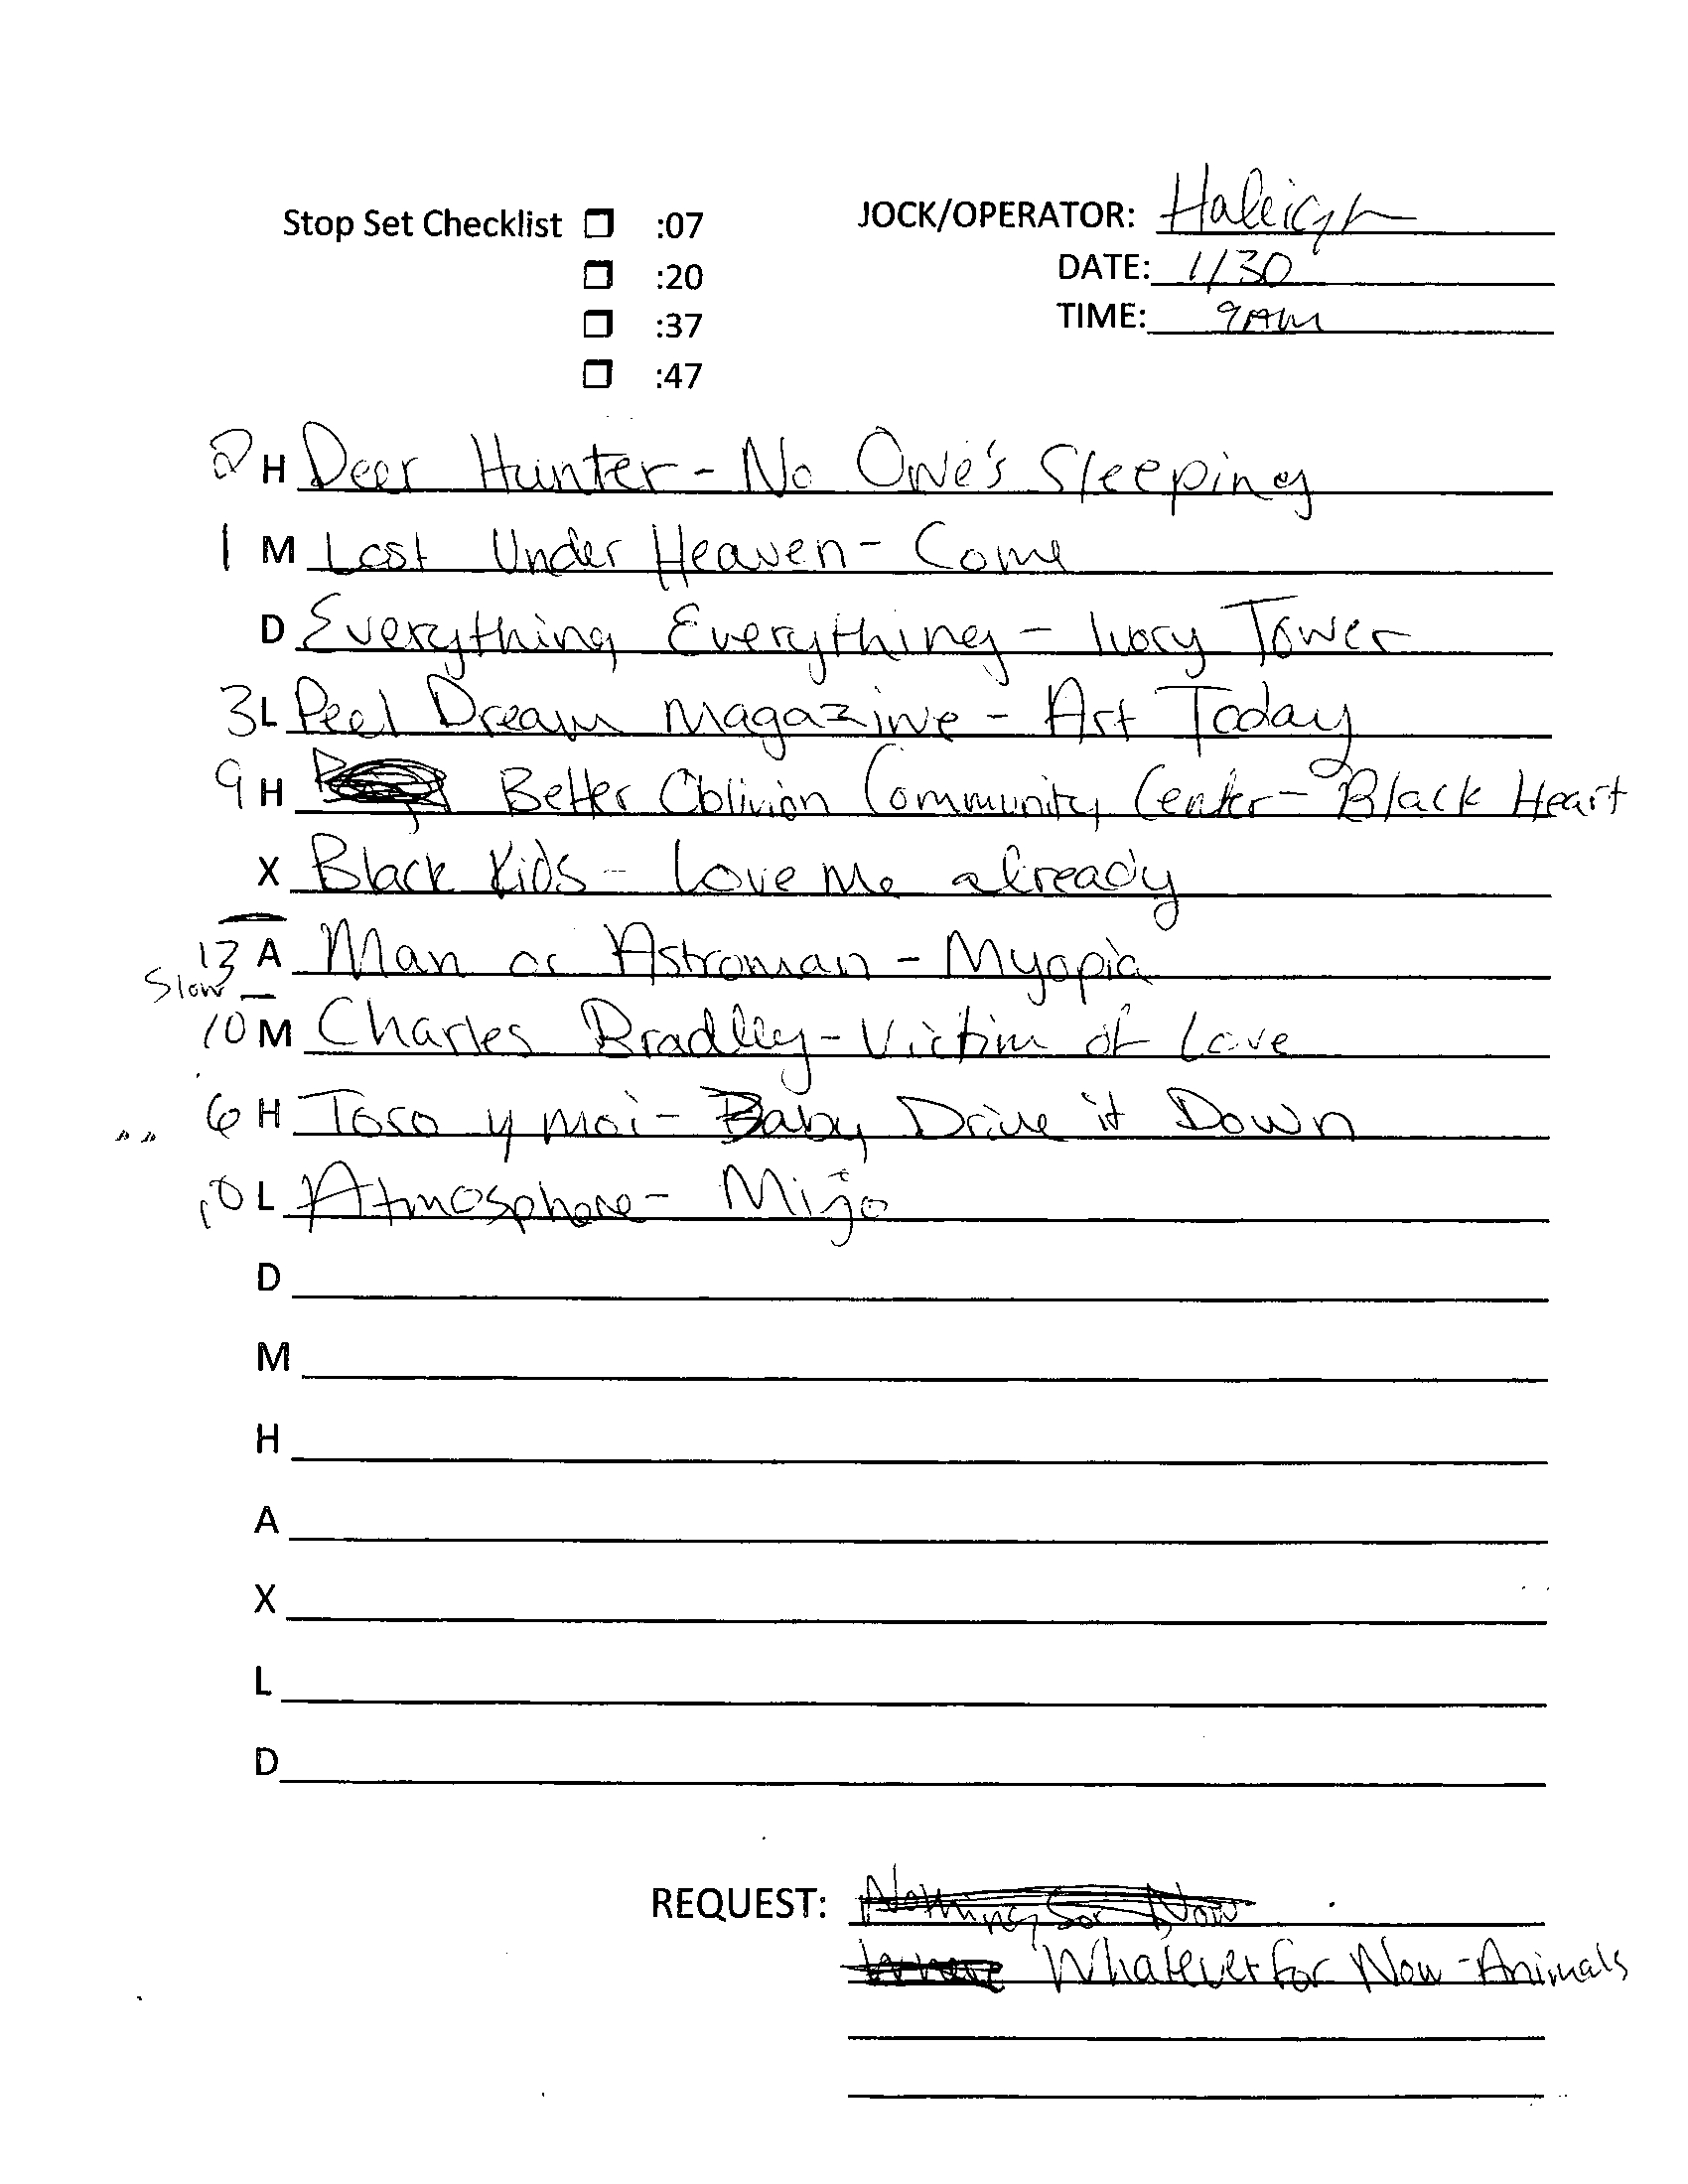 Stop Set Checklist ☐ :07
☐ :20
☐ :37
☐ :47
JOCK/OPERATOR: Haleigh
DATE: 1/30
TIME: 9AM
2 H Deer Hunter - No One's Sleeping
1 M Lost Under Heaven - Come
D Everything Everything - Ivory Tower
3 L Peel Dream Magazine - Art Today
9 H Better Oblivion Community Center - Black Heart
X Black Kids - Love Me already
13 A Man or Astroman - Myopia
Slow
10 M Charles Bradley - Victim of Love
6 H Toro y moi - Baby Drive it Down
10 L Atmosphere - Mijo
D
M
H
A
X
L
D
REQUEST: Nothing for Now
Whatever for Now - Animals